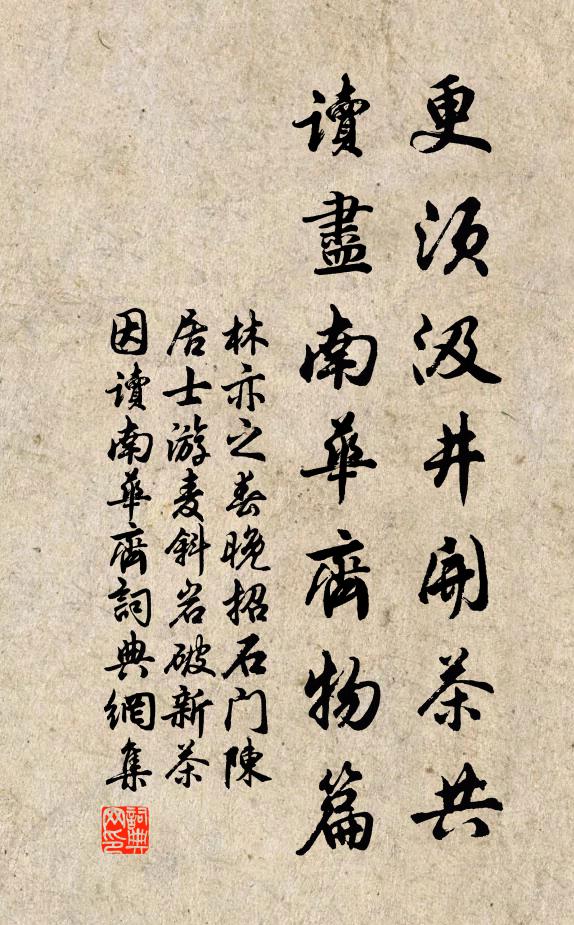 更須汲井開茶共
讀盡南華齊物篇
林亦之春晚招石门陳
居士游麦斜岩破新茶
因讀南華齊詞典網集
詞典网印